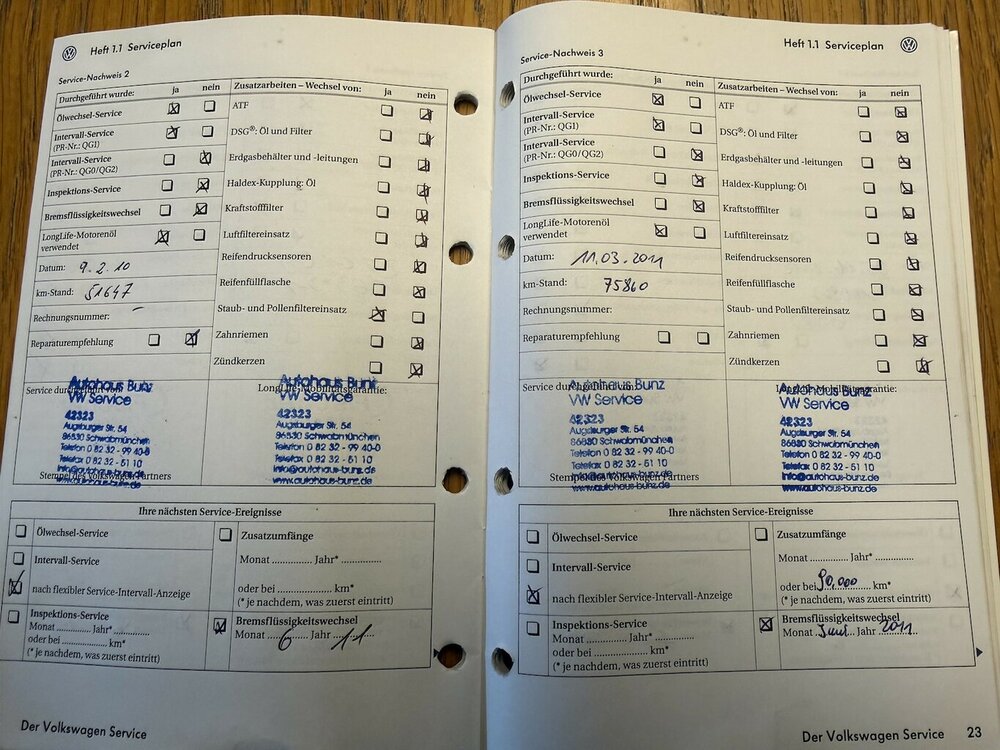 Heft 1.1 Serviceplan
Service-Nachweis 2
Durchgeführt wurde: ja nein
Ölwechsel-Service
Intervall-Service
(PR-Nr.: QG1)
Intervall-Service
(PR-Nr.: QG0/QG2)
Inspektions-Service
Bremsflüssigkeitswechsel
LongLife-Motorenöl
verwendet
Datum: 9.2.10
km-Stand: 51647
Rechnungsnummer: –
Reparaturempfehlung
Zusatzarbeiten – Wechsel von: ja nein
ATF
DSG®: Öl und Filter
Erdgasbehälter und -leitungen
Haldex-Kupplung: Öl
Kraftstofffilter
Luftfiltereinsatz
Reifendrucksensoren
Reifenfüllflasche
Staub- und Pollenfiltereinsatz
Zahnriemen
Zündkerzen
Service durchgeführt von:
Autohaus Bunz
VW Service
42323
Augsburger Str. 54
86830 Schwabmünchen
Telefon 0 82 32 - 99 40-0
Telefax 0 82 32 - 51 10
info@autohaus-bunz.de
www.autohaus-bunz.de
Stempel des Volkswagen Partners
LongLife-Mobilitätsgarantie:
Autohaus Bunz
VW Service
42323
Augsburger Str. 54
86830 Schwabmünchen
Telefon 0 82 32 - 99 40-0
Telefax 0 82 32 - 51 10
info@autohaus-bunz.de
www.autohaus-bunz.de
Ihre nächsten Service-Ereignisse
Ölwechsel-Service
Intervall-Service
nach flexibler Service-Intervall-Anzeige
Inspektions-Service
Monat ............ Jahr*............
oder bei ............ km*
(* je nachdem, was zuerst eintritt)
Zusatzumfänge
Monat ............ Jahr*
oder bei ............ km*
(* je nachdem, was zuerst eintritt)
Bremsflüssigkeitswechsel
Monat 6 Jahr 11
Der Volkswagen Service
Heft 1.1 Serviceplan
Service-Nachweis 3
Durchgeführt wurde: ja nein
Ölwechsel-Service
Intervall-Service
(PR-Nr.: QG1)
Intervall-Service
(PR-Nr.: QG0/QG2)
Inspektions-Service
Bremsflüssigkeitswechsel
LongLife-Motorenöl
verwendet
Datum: 11.03.2011
km-Stand: 75860
Rechnungsnummer:
Reparaturempfehlung
Zusatzarbeiten – Wechsel von: ja nein
ATF
DSG®: Öl und Filter
Erdgasbehälter und -leitungen
Haldex-Kupplung: Öl
Kraftstofffilter
Luftfiltereinsatz
Reifendrucksensoren
Reifenfüllflasche
Staub- und Pollenfiltereinsatz
Zahnriemen
Zündkerzen
Service durchgeführt von:
Autohaus Bunz
VW Service
42323
Augsburger Str. 54
86830 Schwabmünchen
Telefon 0 82 32 - 99 40-0
Telefax 0 82 32 - 51 10
info@autohaus-bunz.de
www.autohaus-bunz.de
Stempel des Volkswagen Partners
LongLife-Mobilitätsgarantie:
Autohaus Bunz
VW Service
42323
Augsburger Str. 54
86830 Schwabmünchen
Telefon 0 82 32 - 99 40-0
Telefax 0 82 32 - 51 10
info@autohaus-bunz.de
www.autohaus-bunz.de
Ihre nächsten Service-Ereignisse
Ölwechsel-Service
Intervall-Service
nach flexibler Service-Intervall-Anzeige
Inspektions-Service
Monat ............ Jahr*............
oder bei ............ km*
(* je nachdem, was zuerst eintritt)
Zusatzumfänge
Monat ............ Jahr*
oder bei 90.000 km*
(* je nachdem, was zuerst eintritt)
Bremsflüssigkeitswechsel
Monat Juni Jahr 2011
Der Volkswagen Service 23